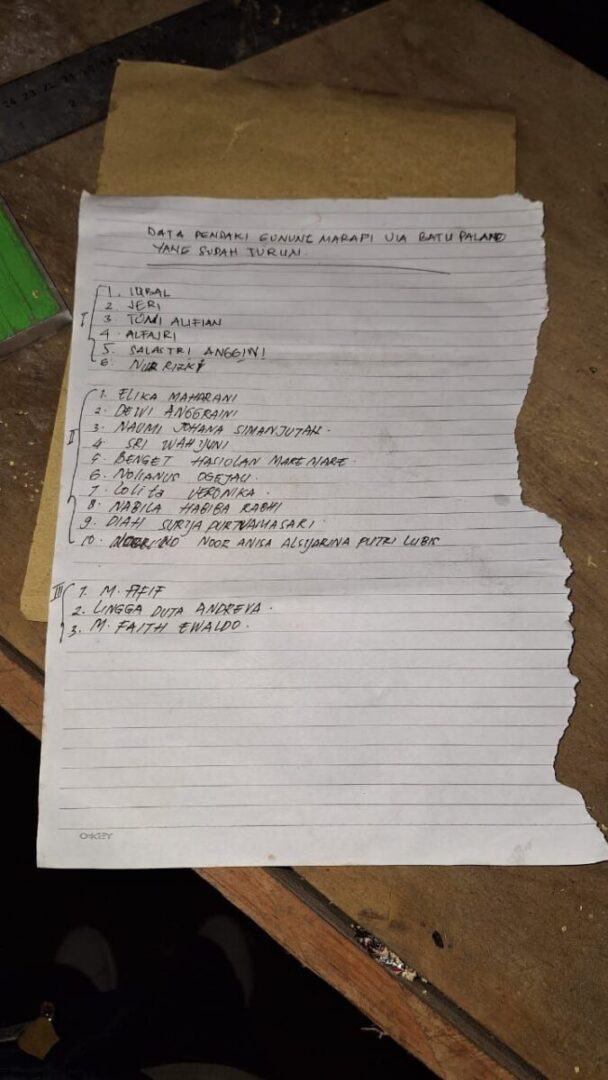 DATA PENDAKI GUNUNG MARAPI VIA BATU PALANO
YANG SUDAH TURUN.
I
1. IQBAL
2. JERI
3. TOMI ALIFIAN
4. ALFAJRI
5. SALASTRI ANGGINI
6. NUR RIZKY
II
1. ELIKA MAHARANI
2. DEWI ANGGRAINI
3. NAUMI JOHANA SIMANJUTAK.
4. SRI WAHYUNI
5. BENGET HASIOLAN MAREMARE.
6. NOLIANUS OGEJAU.
7. Lolita VERONIKA.
8. NABILA HABIBA RABHI
9. DIAH SURYA PURTNAMASARI.
10. NOOR ANISA ALSYARINA PUTRI LUBIS
III
1. M. AFIF
2. LINGGA DUTA ANDREVA.
3. M. FAITH EWALDO.
OKEY
24 23 22 21